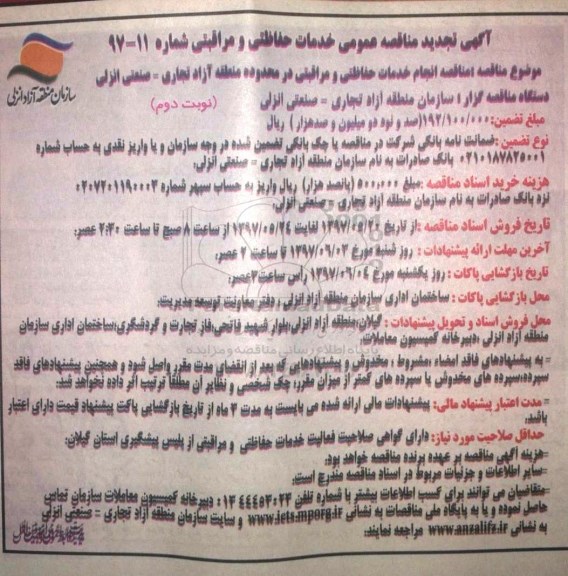 آگهی تجدید مناقصه عمومی خدمات حفاظتی و مراقبتی شماره ۱۱-۹۷
سازمان منطقه آزاد انزلی
موضوع مناقصه : مناقصه انجام خدمات حفاظتی و مراقبتی در محدوده منطقه آزاد تجاری – صنعتی انزلی
دستگاه مناقصه گزار : سازمان منطقه آزاد تجاری – صنعتی انزلی (نوبت دوم)
مبلغ تضمین: ۱۹۲/۱۰۰/۰۰۰(صد و نود دو میلیون و صدهزار ) ریال
نوع تضمین :ضمانت نامه بانکی شرکت در مناقصه یا چک بانکی تضمین شده در وجه سازمان و یا واریز نقدی به حساب شماره
۰۲۱۰۱۸۷۸۲۵۰۰۱ بانک صادرات به نام سازمان منطقه آزاد تجاری – صنعتی انزلی.
هزینه خرید اسناد مناقصه :مبلغ ۵۰۰,۰۰۰ (پانصد هزار) ریال واریز به حساب سپهر شماره ۰۲۰۷۲۰۱۱۹۰۰۰۳
نزد بانک صادرات به نام سازمان منطقه آزاد تجاری – صنعتی انزلی.
تاریخ فروش اسناد مناقصه :از تاریخ ۱۳۹۷/۰۵/ لغایت ۱۳۹۷/۰۵/۲۴ از ساعت ۸ صبح تا ساعت ۲:۳۰ عصر.
آخرین مهلت ارائه پیشنهادات : روز شنبه مورخ ۱۳۹۷/۰۶/۰۳ تا ساعت ۲ عصر.
تاریخ بازگشایی پاکات : روز یکشنبه مورخ ۱۳۹۷/۰۶/۰۴ راس ساعت۲عصر.
محل بازگشایی پاکات : ساختمان اداری سازمان منطقه آزاد انزلی ، دفتر معاونت توسعه مدیریت.
محل فروش اسناد و تحویل پیشنهادات : گیلان،منطقه آزاد انزلی،بلوار شهید فاتحی،فاز تجارت و گردشگری،ساختمان اداری سازمان
منطقه آزاد انزلی ،دبیرخانه کمیسیون معاملات.
پایگاه اطلاع رسانی مناقصه و مزایده
– به پیشنهادهای فاقد امضاء ،مشروط ، مخدوش و پیشنهادهایی که بعد از انقضای مدت مقرر واصل شود و همچنین پیشنهادهای فاقد
سپرده،سپرده های مخدوش یا سپرده های کمتر از میزان مقرر، چک شخصی و نظایر آن مطلقا ترتیب اثر داده نخواهد شد.
– مدت اعتبار پیشنهاد مالی: پیشنهادات مالی ارائه شده می بایست به مدت ۳ ماه از تاریخ بازگشایی پاکت پیشنهاد قیمت دارای اعتبار
باشد.
حداقل صلاحیت مورد نیاز: دارای گواهی صلاحیت فعالیت خدمات حفاظتی و مراقبتی از پلیس پیشگیری استان گیلان.
–هزینه آگهی مناقصه بر عهده برنده مناقصه خواهد بود.
–سایر اطلاعات و جزئیات مربوط در اسناد مناقصه مندرج است.
–متقاضیان می توانند برای کسب اطلاعات بیشتر با شماره تلفن ۳۰۲۳ ۴۴۴۵ ۰۱۳ : دبیرخانه کمیسیون معاملات سازمان تماس
حاصل نموده و یا به پایگاه ملی مناقصات به نشانی www.iets.mporg.ir و سایت سازمان منطقه آزاد تجاری – صنعتی انزلی
به نشانی www.anzalifz.ir مراجعه نمایند.